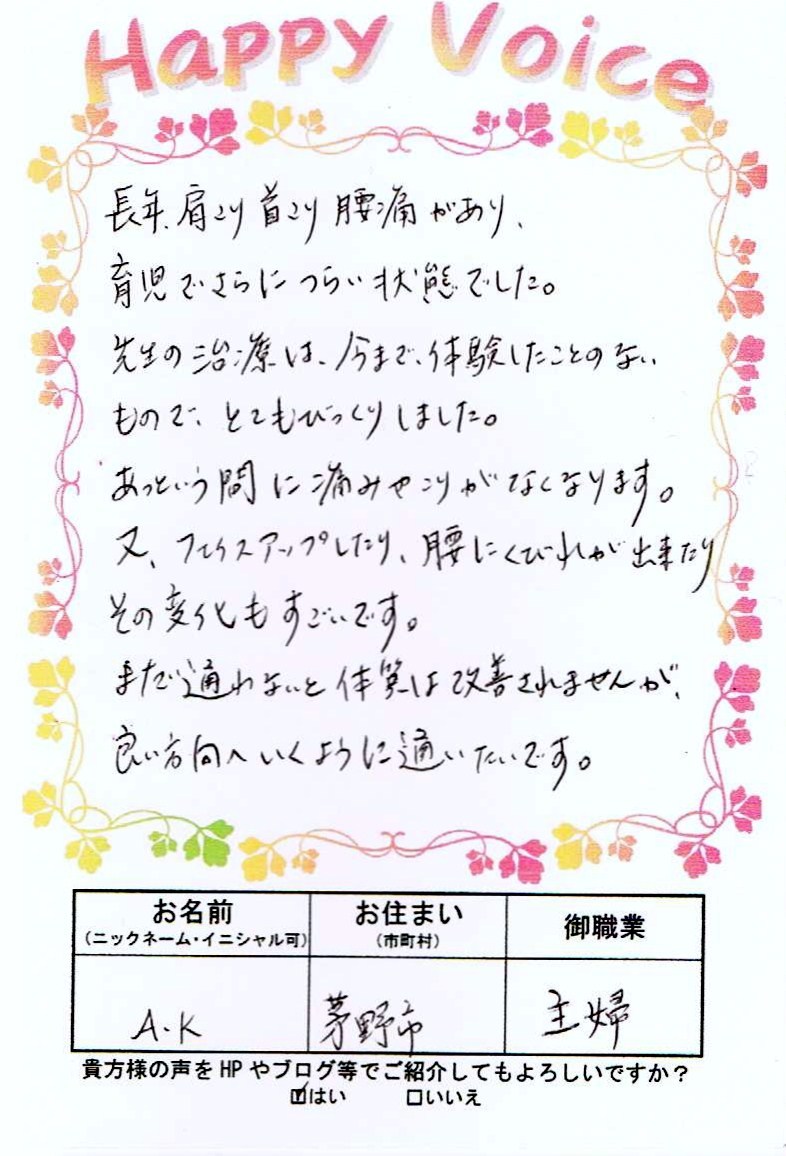 Happy Voice
長年、肩こり首こり腰痛があり、
育児でさらにつらい状態でした。
先生の治療は、今まで、体験したことのない
もので、とてもびっくりしました。
あっという間に痛みやこりがなくなります。
又、フェイスアップしたり、腰にくびれが出来たり
その変化もすごいです。
まだ通わないと体質は改善されませんが、
良い方向へいくように通いたいです。
お名前 お住まい 御職業
(ニックネーム・イニシャル可) (市町村)
A.K 茅野市 主婦
貴方様の声をHPやブログ等でご紹介してもよろしいですか?
☑はい □いいえ